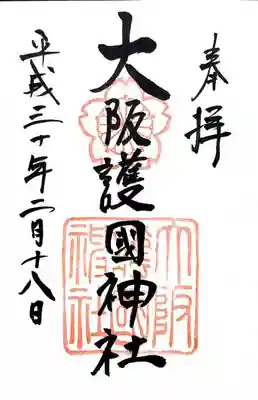 奉拝
大阪護國神社
平成三十年二月十八日
大阪護國神社